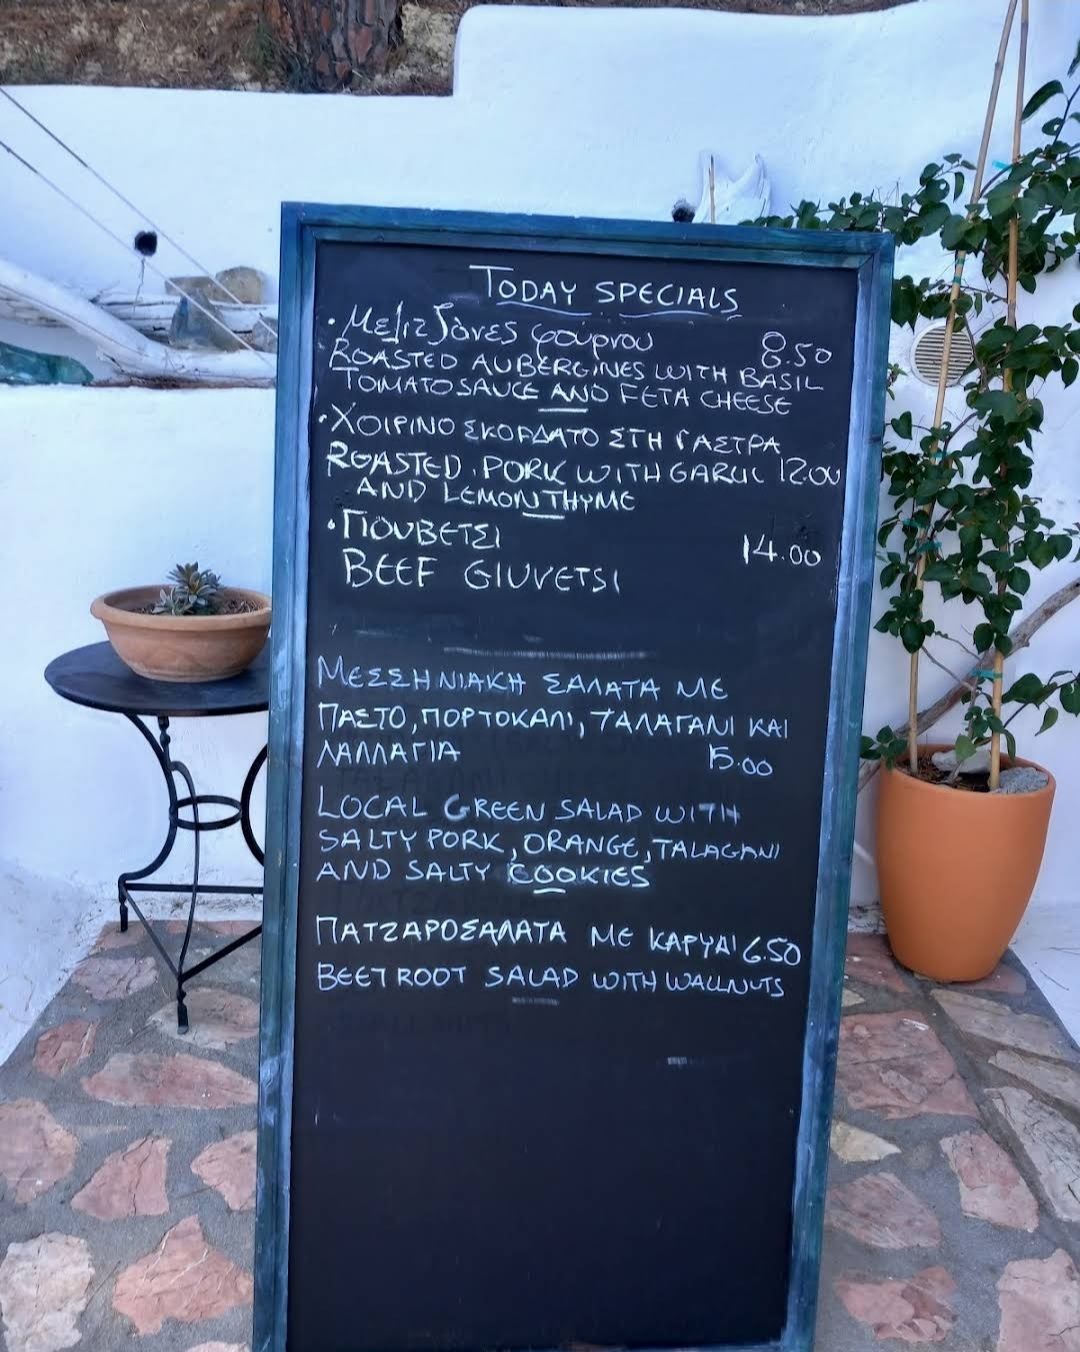 TODAY SPECIALS
• Μελιτζάνες φούρνου 8.50
ROASTED AUBERGINES WITH BASIL
TOMATO SAUCE AND FETA CHEESE
• ΧΟΙΡΙΝΟ ΣΚΟΡΔΑΤΟ ΣΤΗ ΓΑΣΤΡΑ
ROASTED PORK WITH GARLIC 12.00
AND LEMONTHYME
• ΓΙΟΥΒΕΤΣΙ
14.00
BEEF GIUVETSI
ΜΕΣΣΗΝΙΑΚΗ ΣΑΛΑΤΑ ΜΕ
ΠΑΣΤΟ, ΠΟΡΤΟΚΑΛΙ, ΤΑΛΑΓΑΝΙ ΚΑΙ
ΛΑΛΛΑΓΙΑ 15.00
LOCAL GREEN SALAD WITH
SALTY PORK, ORANGE, TALAGANI
AND SALTY COOKIES
ΠΑΤΖΑΡΟΣΑΛΑΤΑ ΜΕ ΚΑΡΥΔΙ 6.50
BEETROOT SALAD WITH WALLNUTS